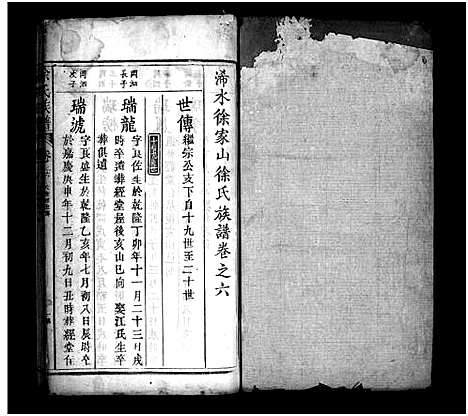 浠水徐家山徐氏族譜卷之六
世傳
繼宗公支下自十九世至二十世
瑞龍
開泗長子
字良佐生於乾隆丁卯年十一月二十三日戌
時卒遺葬經堂屋後亥山巳向娶江氏生卒
葬俱遺
瑞滮
次子
字良盛生於乾隆乙亥年七月初八日辰時卒
於嘉慶庚申年十二月初九日丑時葬經堂在
徐氏族譜